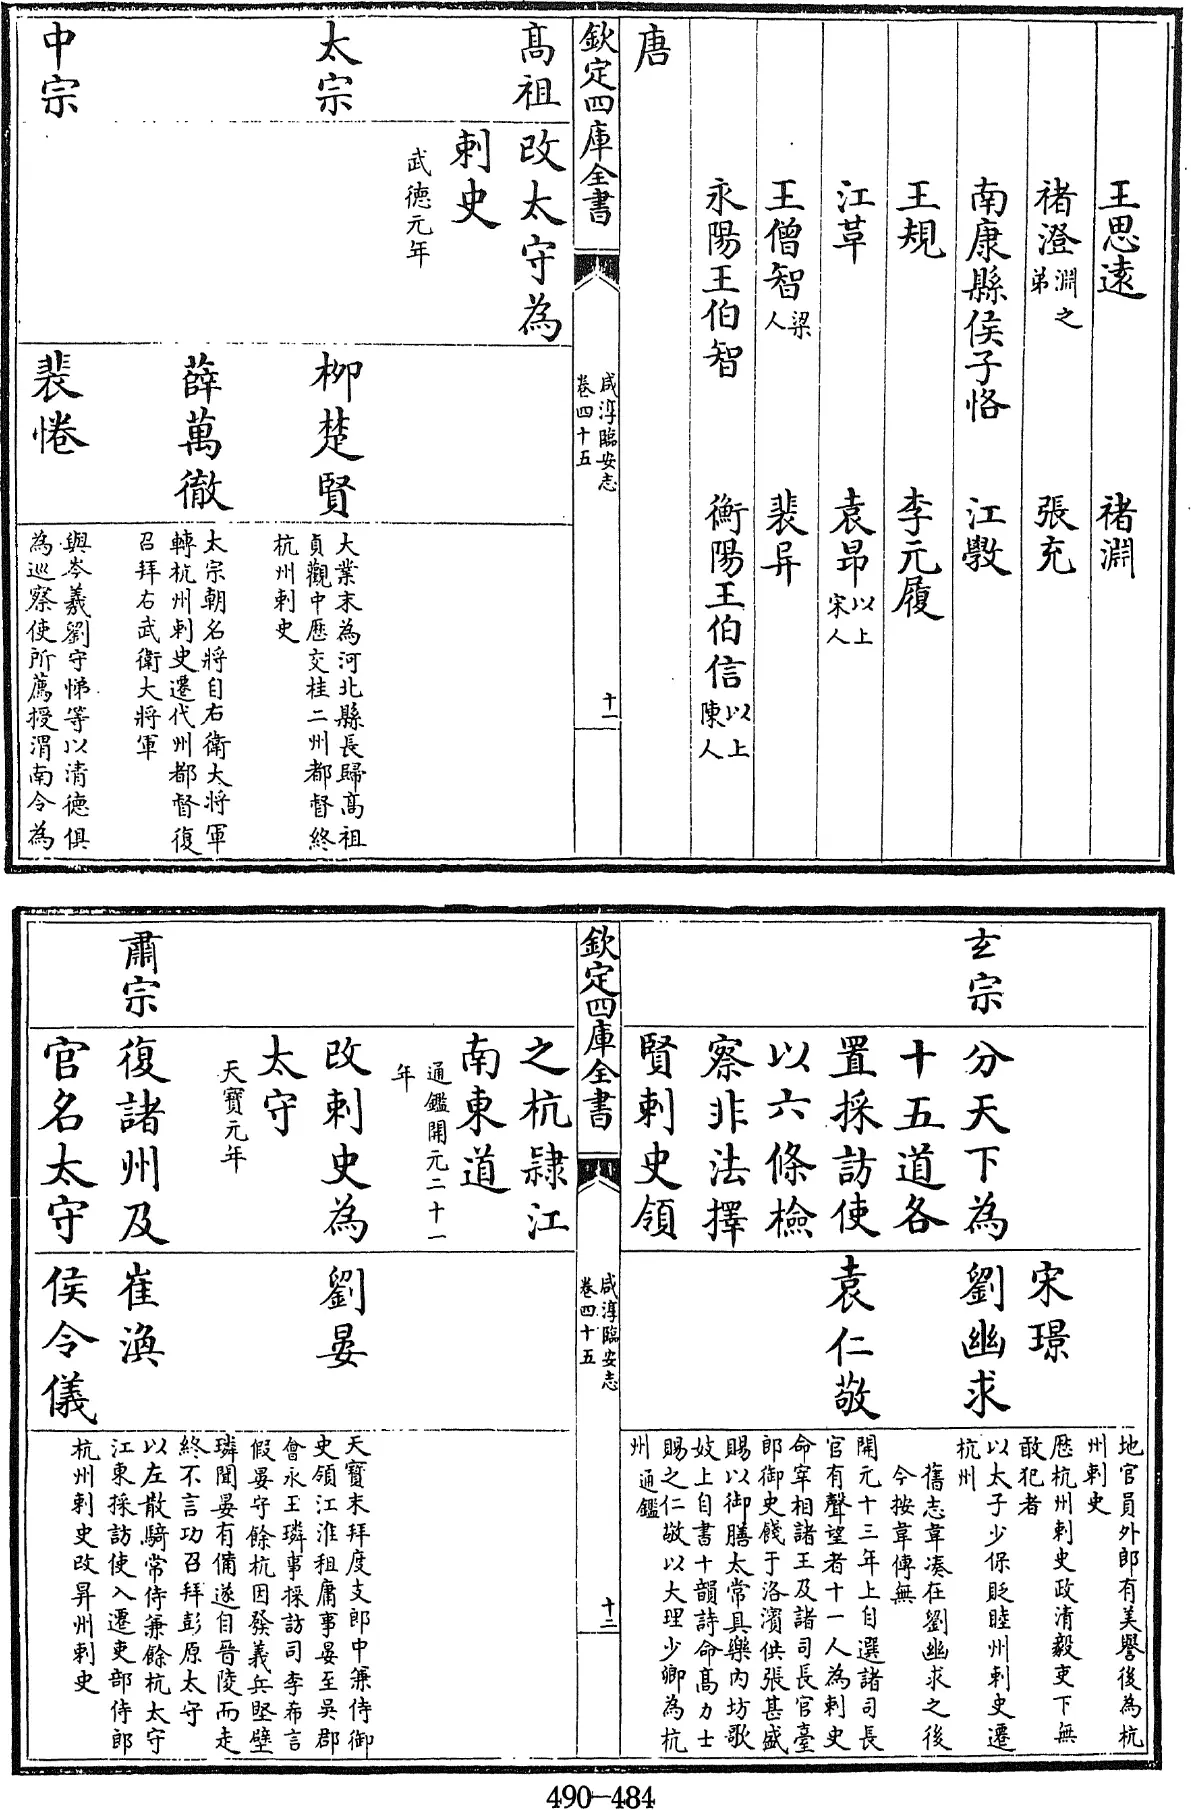 王思遠 褚淵
褚澄淵之弟 張充
南康縣侯子恪 江斆
王規 李元履
江革 袁昂以上宋人
王僧智梁人 裴异
永陽王伯智 衡陽王伯信以上陳人
唐
欽定四庫全書 咸淳臨安志卷四十五 十一
高祖 改太守為
刺史
武德元年
太宗 柳楚賢 大業末為河北縣長歸高祖
貞觀中歷交桂二州都督終
杭州刺史
薛萬徹 太宗朝名將自右衛大將軍
轉杭州刺史遷代州都督復
召拜右武衛大將軍
中宗 裴惓 與岑羲劉守悌等以清德俱
為巡察使所薦授渭南令為
地官員外郎有美譽後為杭
州刺史
宋璟 歷杭州刺史政清毅吏下無
敢犯者
玄宗 分天下為 劉幽求 以太子少保貶睦州刺史遷
杭州
十五道各 舊志韋湊在劉幽求之後
今按韋傳無
置採訪使 袁仁敬 開元十三年上自選諸司長
官有聲望者十一人為刺史
以六條檢 命宰相諸王及諸司長官臺
郎御史餞于洛濱供張甚盛
察非法擇 賜以御膳太常具樂內坊歌
妓上自書十韻詩命高力士
賢刺史領 賜之仁敬以大理少卿為杭
州通鑑
欽定四庫全書 咸淳臨安志卷四十五 十二
之杭隷江
南東道
通鑑開元二十一
年
改刺史為 劉晏 天寶末拜度支郎中兼侍御
史領江淮租庸事晏至吳郡
太守 會永王璘事採訪司李希言
假晏守餘杭因發義兵堅壁
天寶元年 璘聞晏有備遂自晉陵而走
終不言功召拜彭原太守
肅宗 復諸州及 崔渙 以左散騎常侍兼餘杭太守
江東採訪使入遷吏部侍郎
官名太守 侯令儀 杭州刺史改昇州刺史
490-484